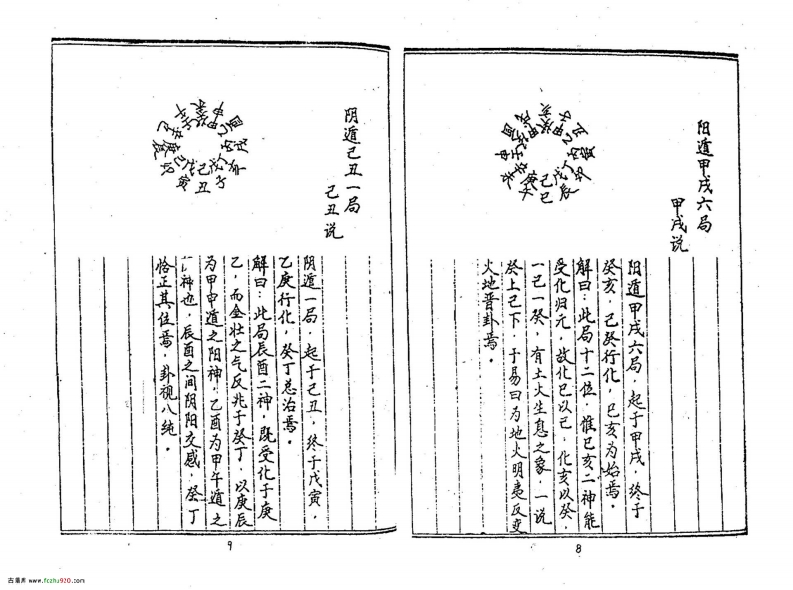 阳遁甲戌六局
甲戌说
阳遁甲戌六局，起于甲戌，终于
癸亥，己癸行化，巳亥为始焉。
解曰：此局十二位，惟巳亥二神能
受化归元，故化巳以己，化亥以癸，
一己一癸，有土火生息之象，一说
癸上己下，于易曰为地火明夷反变
火地晋卦焉。
8
阴遁己丑一局
己丑说
阴遁一局，起于己丑，终于戊寅，
乙庚行化，癸丁总治焉。
解曰：此局辰酉二神，既受化于庚
乙，而金壮之气反兆于癸丁，以庚辰
为甲申遁之阳神，乙酉为甲午遁之
神也，辰酉之间阴阳交感，癸丁
恰正其位焉，卦视八纯。
9
古易库 www.fczhu920.com